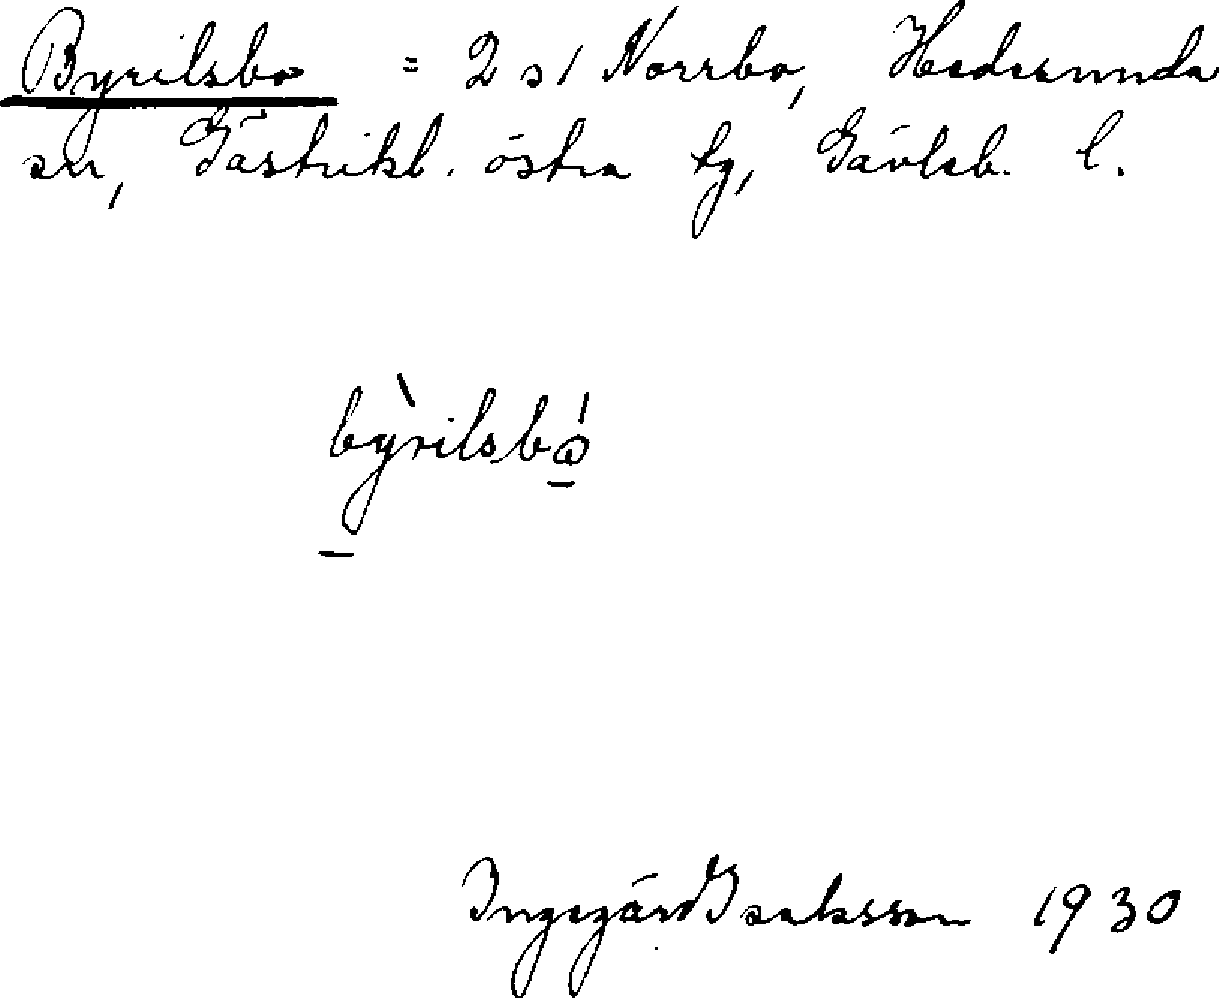 Byrilsbo = 2 s1 Norrbo, Hedesunda
sn, Gästrikl. östra tg, Gävleb. l.
bỳrilsbó̲
Ingegärd Isaksson 1930